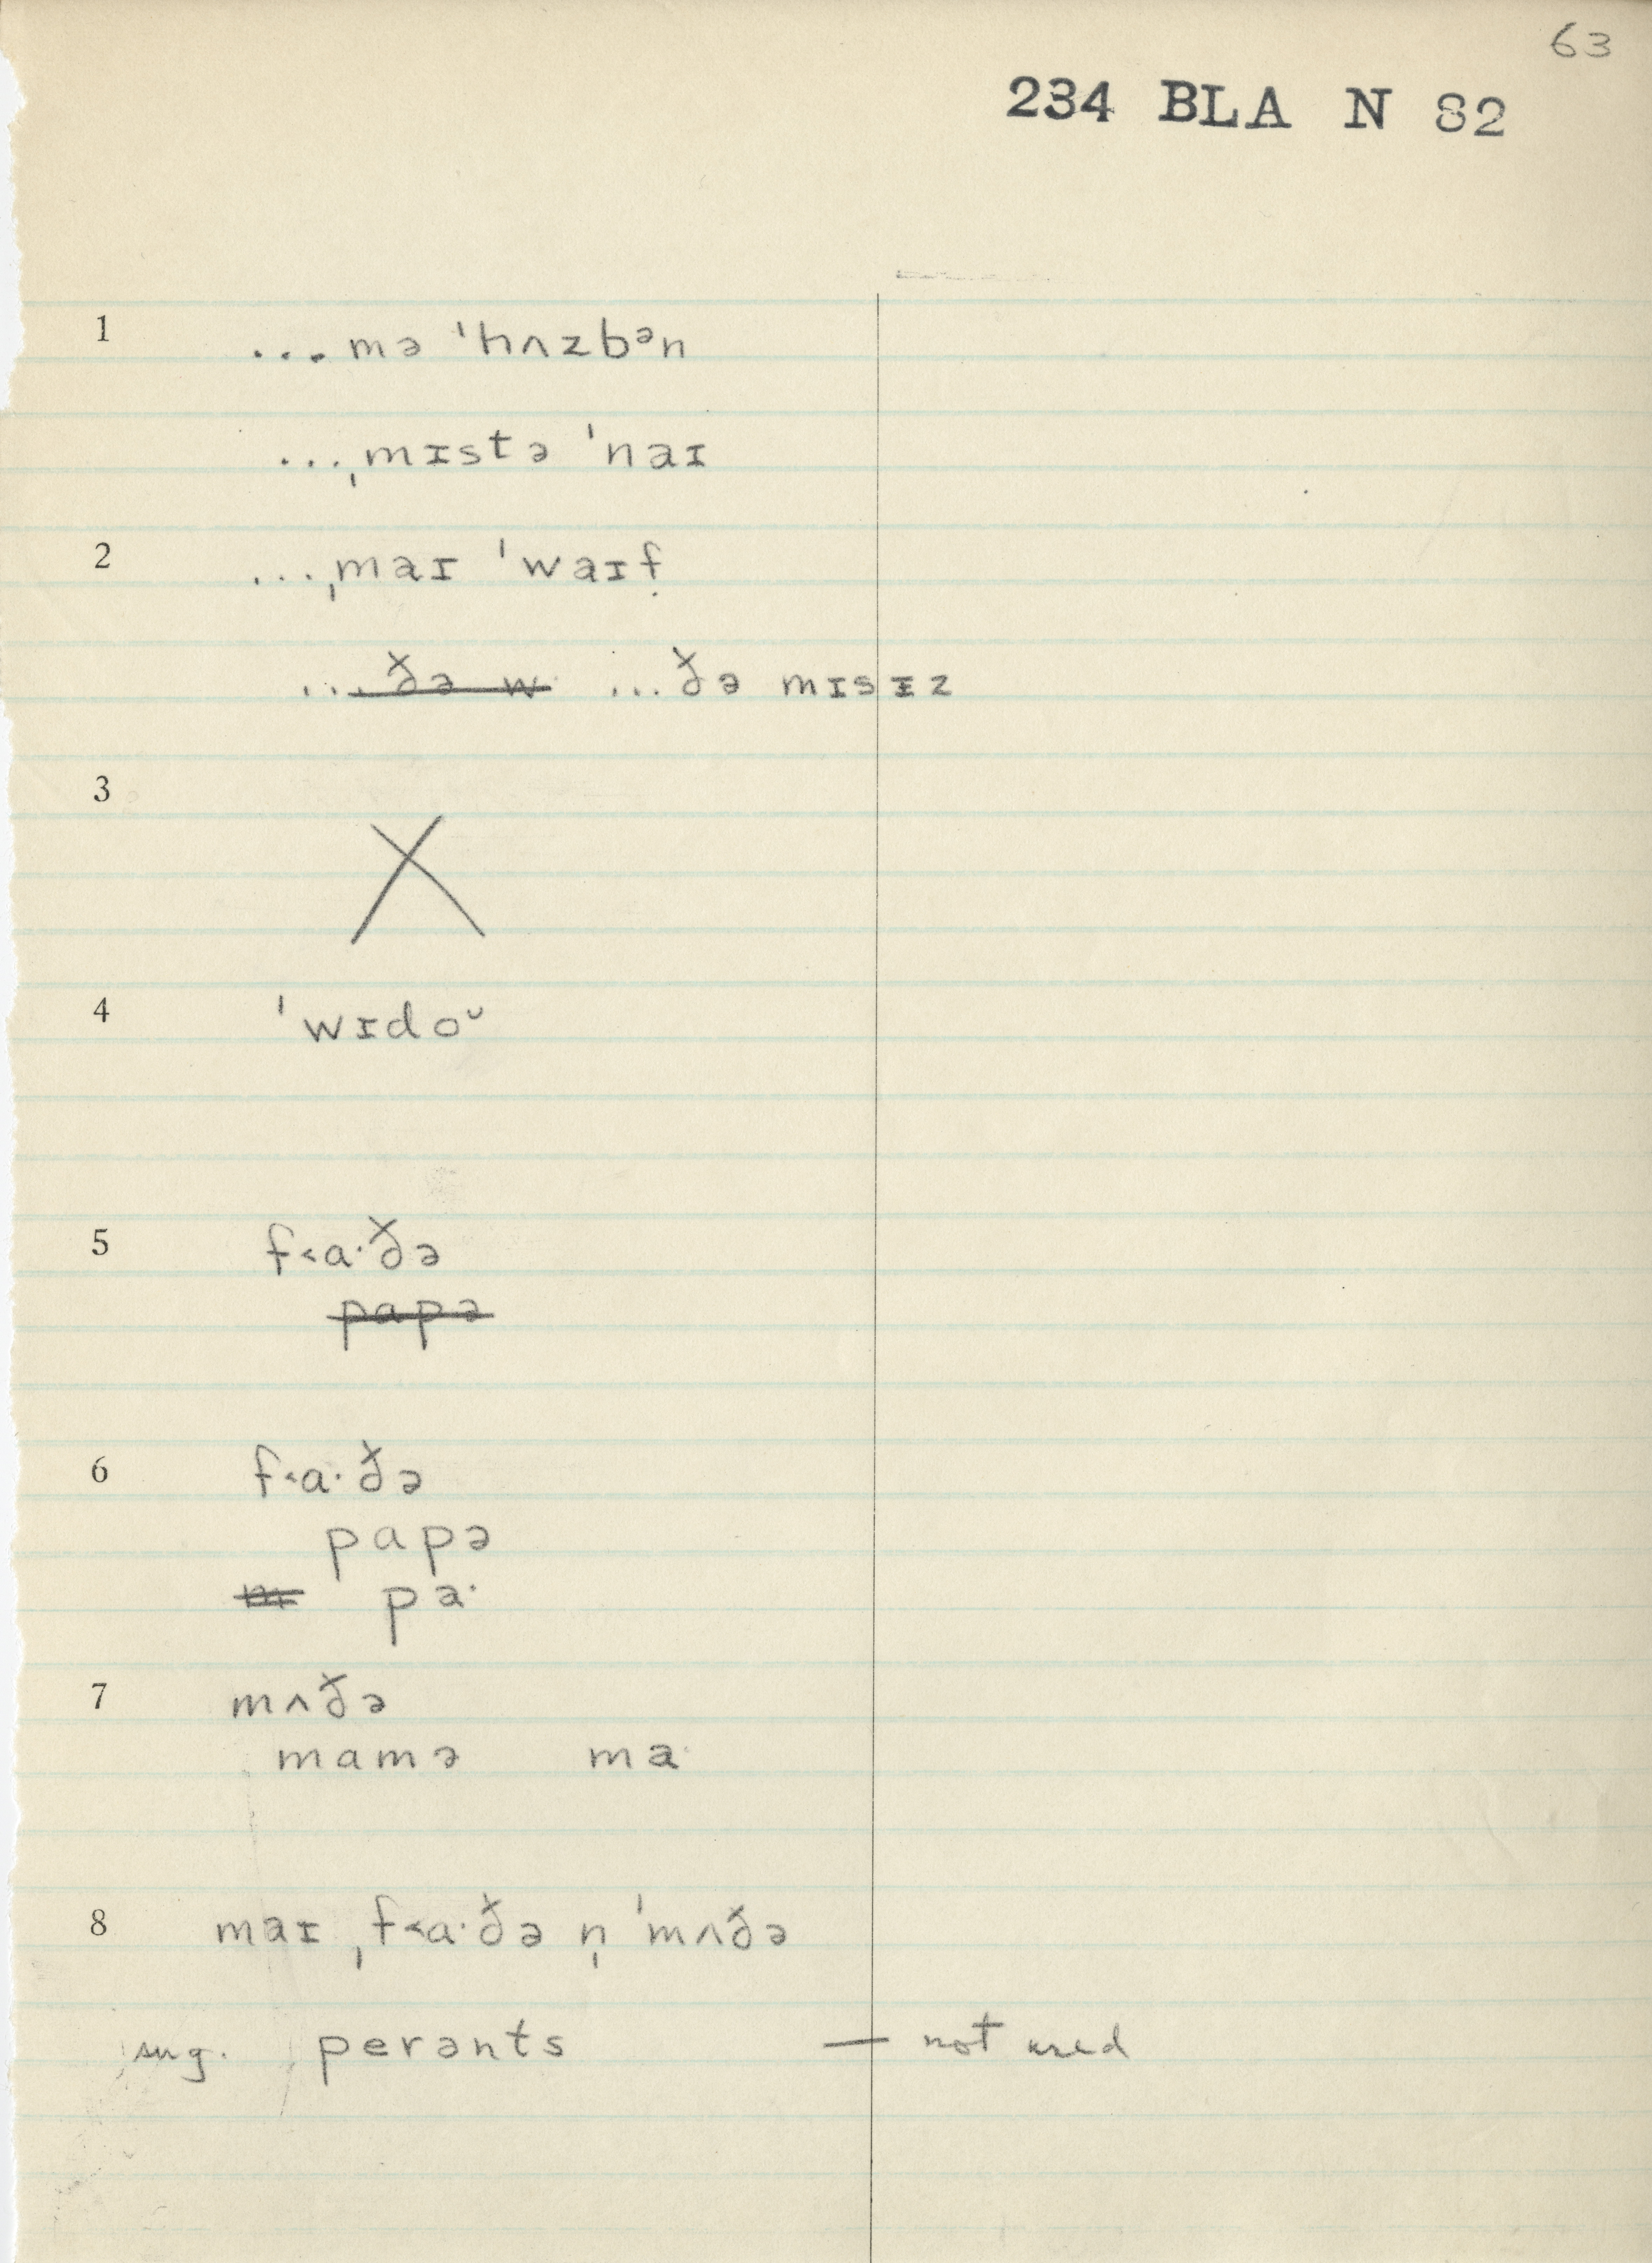 63
234 BLA N 82
1 ... mə ˈhʌzbᵊn
...ˌmɪstə ˈnaɪ
2 ...ˌmaɪ ˈwaɪf
... ðə w ... ðə mɪsɪz
3 X
4 ˈwɪdoᶷ
5 f˂a·ðə
papə
6 f˂a·ðə
papə
m pa·
7 mʌðə
mamə ma·
8 maɪ ˌf˂a·ðə n̩ ˈmʌðə
sug. perənts — not used